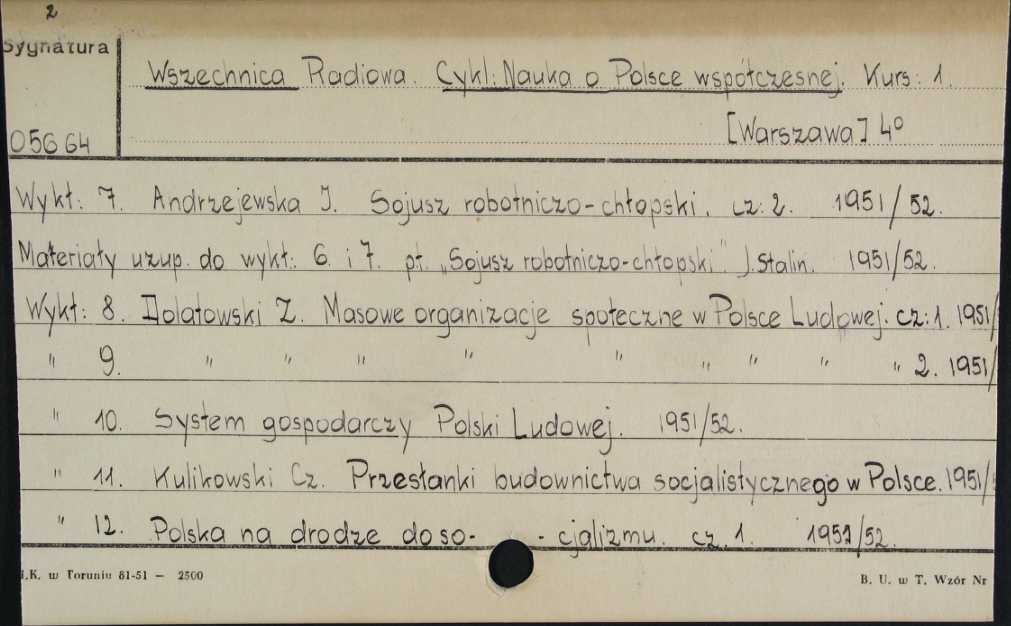 2
Sygnatura
Wszechnica Radiowa. Cykl: Nauka o Polsce współczesnej. Kurs: 1.
05664
[Warszawa] 4°
Wykł: 7. Andrzejewska J. Sojusz robotniczo-chłopski. cz: 2. 1951/52.
Materiały uzup. do wykł: 6. i 7. pt. „Sojusz robotniczo-chłopski" J. Stalin. 1951/52.
Wykł: 8. Dolatowski Z. Masowe organizacje społeczne w Polsce Ludowej. cz: 1. 1951/
" 9. " " " " " " " " " 2. 1951/
" 10. System gospodarczy Polski Ludowej. 1951/52.
" 11. Kulikowski Cz. Przesłanki budownictwa socjalistycznego w Polsce. 1951/
" 12. Polska na drodze do so- - cjalizmu. cz. 1. 1951/52.
.K. w Toruniu 81-51 — 2500
B. U. w T. Wzór Nr